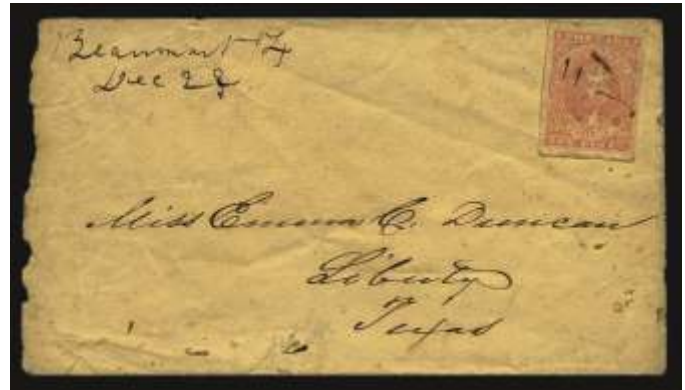 Beaumont Tx
Dec 28
Miss Emma C. Duncan
Liberty
Texas